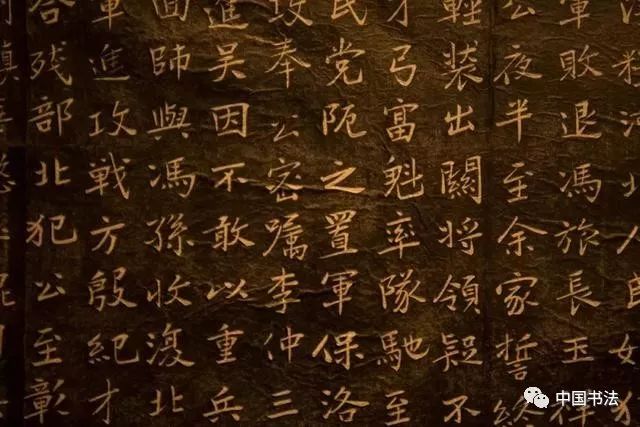 河北人民
軍敗退馮旅長玉祥
公夜半至余家誓終
輕裝出關將領疑不
才弓富魁率隊馳至
民党阨之置軍保洛
攻奉公密嘱李仲三
進吴因不敢以重兵
囬師與馮孫收復北
軍進攻戦方殷紀才
合残部北犯公至彰
中国书法